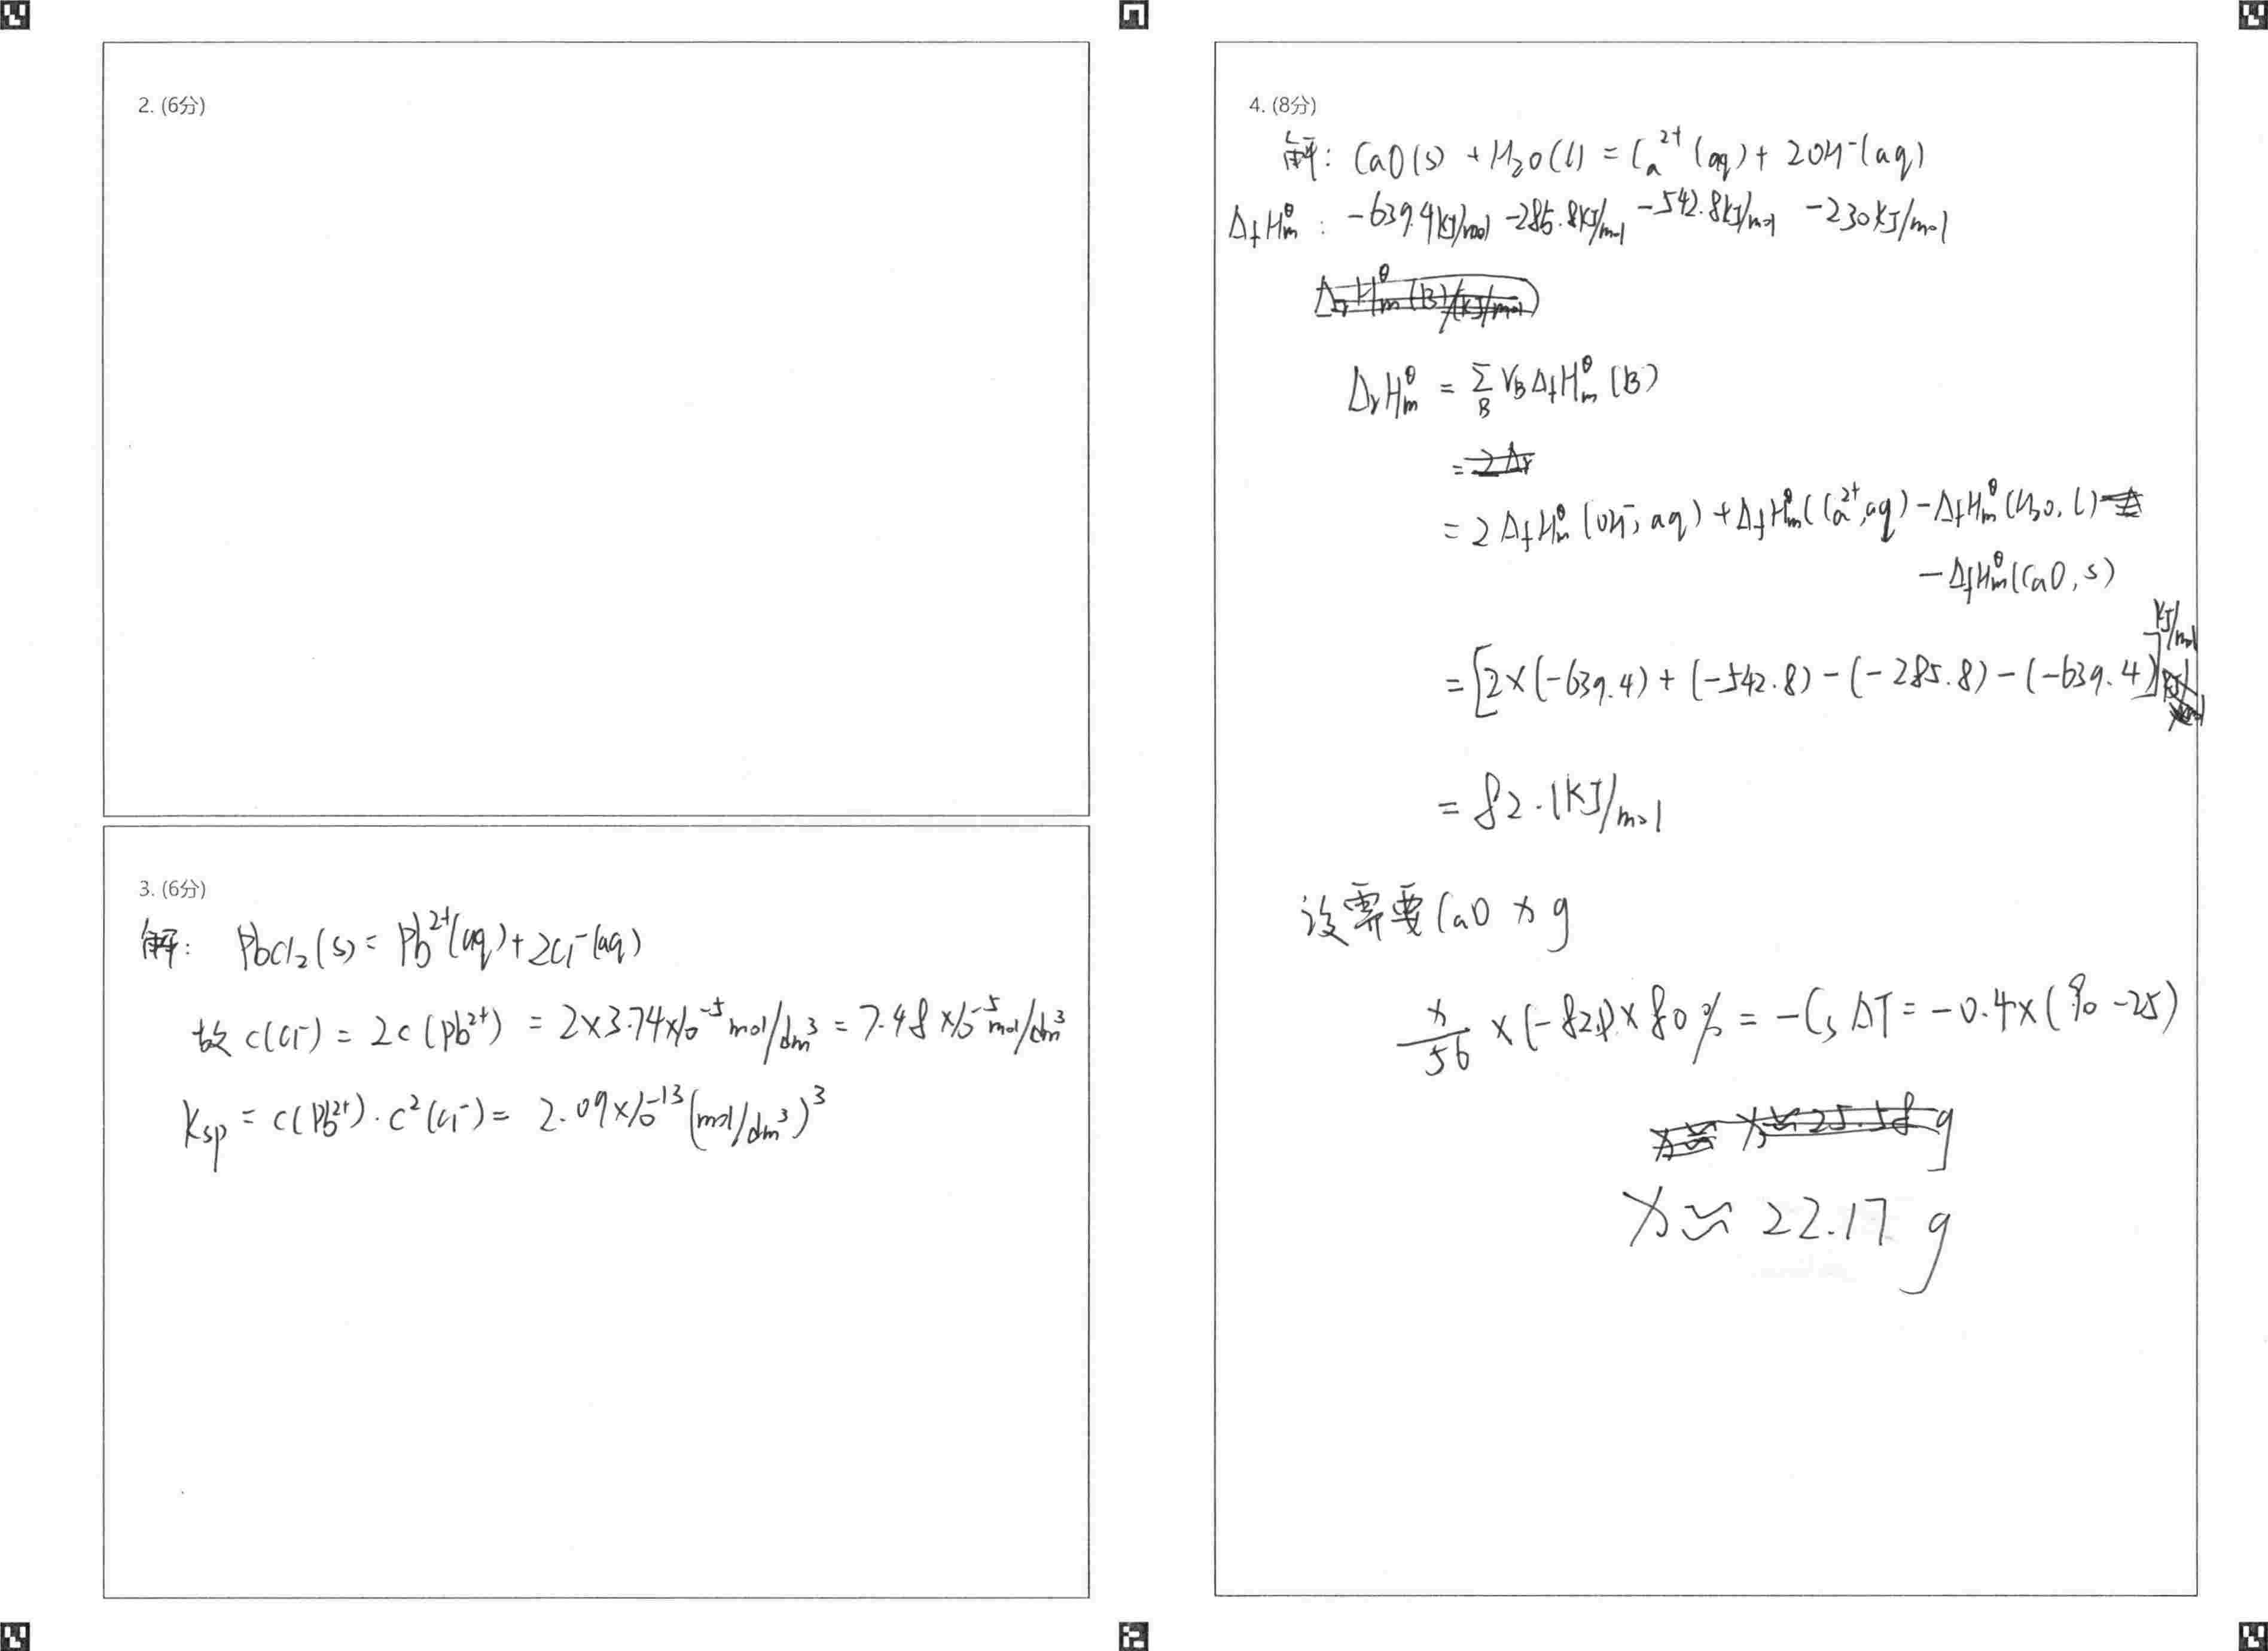 2. (6分)
3. (6分)
解: PbCl₂(s) = Pb²⁺(aq) + 2Cl⁻(aq)
故 c(Cl⁻) = 2c(Pb²⁺) = 2×3.74×10⁻⁵ mol/dm³ = 7.48×10⁻⁵ mol/dm³
Ksp = c(Pb²⁺)·c²(Cl⁻) = 2.09×10⁻¹³ (mol/dm³)³
4. (8分)
解: CaO(s) + H₂O(l) = Ca²⁺(aq) + 2OH⁻(aq)
ΔfHmθ : -639.4kJ/mol -285.8kJ/mol -542.8kJ/mol -230kJ/mol
ΔrHmθ = ΣB νB ΔfHmθ (B)
= 2ΔfHmθ (OH⁻, aq) + ΔfHmθ (Ca²⁺, aq) - ΔfHmθ (H₂O, l)
- ΔfHmθ (CaO, s)
= [2×(-639.4) + (-542.8) - (-285.8) - (-639.4)] kJ/mol
= 82.1kJ/mol
设需要CaO x g
x/56 × (-82.1) × 80% = -Cs ΔT = -0.4×(90-25)
x ≈ 22.17 g